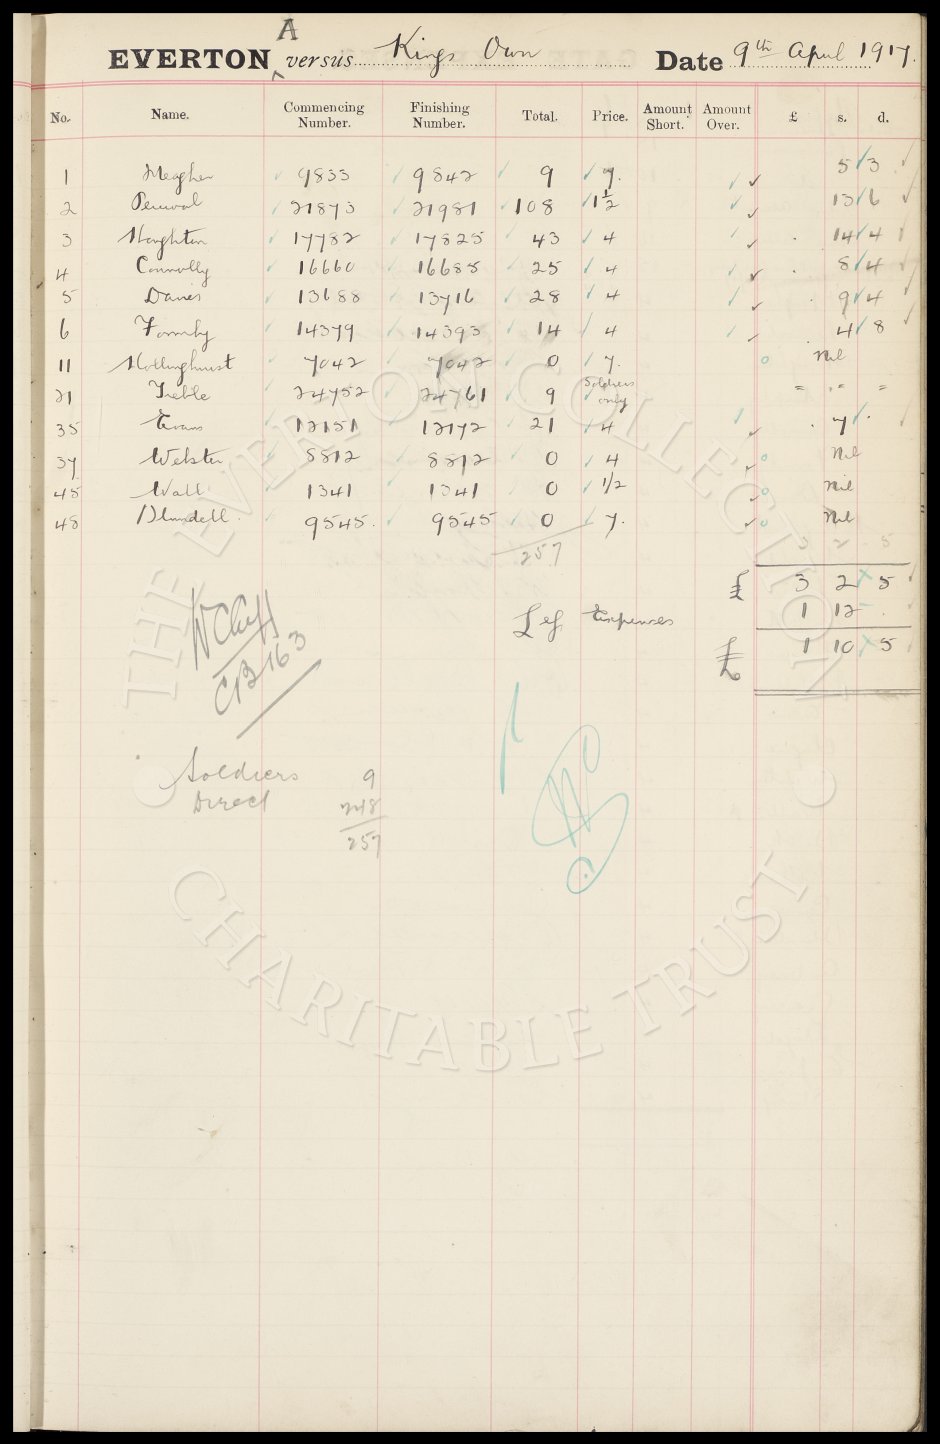 A
EVERTON ^ versus Kings Own Date 9th April 1917.
No. Name. Commencing Number. Finishing Number. Total. Price. Amount Short. Amount Over. £ s. d.
1 Meagher 9833 9842 9 7. 5 3
2 Percival 21873 21981 108 1½ 13 6
3 Houghton 17782 17825 43 4 14 4
4 Connolly 16660 16685 25 4 8 4
5 Davies 13688 13716 28 4 9 4
6 Formby 14379 14393 14 4 4 8
11 Hollinghurst 7042 7042 0 7. Nil
21 Treble 24752 24761 9 Soldiers only " " "
35 Evans 12151 12172 21 4 7 .
37 Webster 8812 8812 0 4 Nil
45 Wall 1341 1341 0 1/2 Nil
48 Blundell. 9545. 9545 0 7. Nil
257 3 2 5
£ 3 2 5
Less Expenses 1 12 -
£ 1 10 5
W Cuff
CB 163
Soldiers 9
Direct 248
257
THE EVERTON COLLECTION
CHARITABLE TRUST